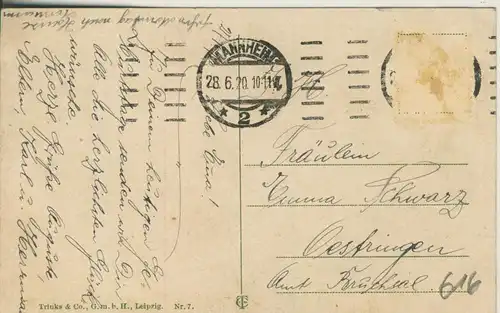 MANNHEIM
28.6.20. 10-11 V.
* 2 *
Liebe Emma!
Zu Deinem heutigen Ge-
senden wir Dir
Alle die herzlichsten Glück-
wünsche.
Herzl. Grüße
Eltern, Karl u. Hermann
Fräulein
Emma Schwarz
Oestringen
Amt Bruchsal
616
Trinks & Co., G. m. b. H., Leipzig. Nr. 7.